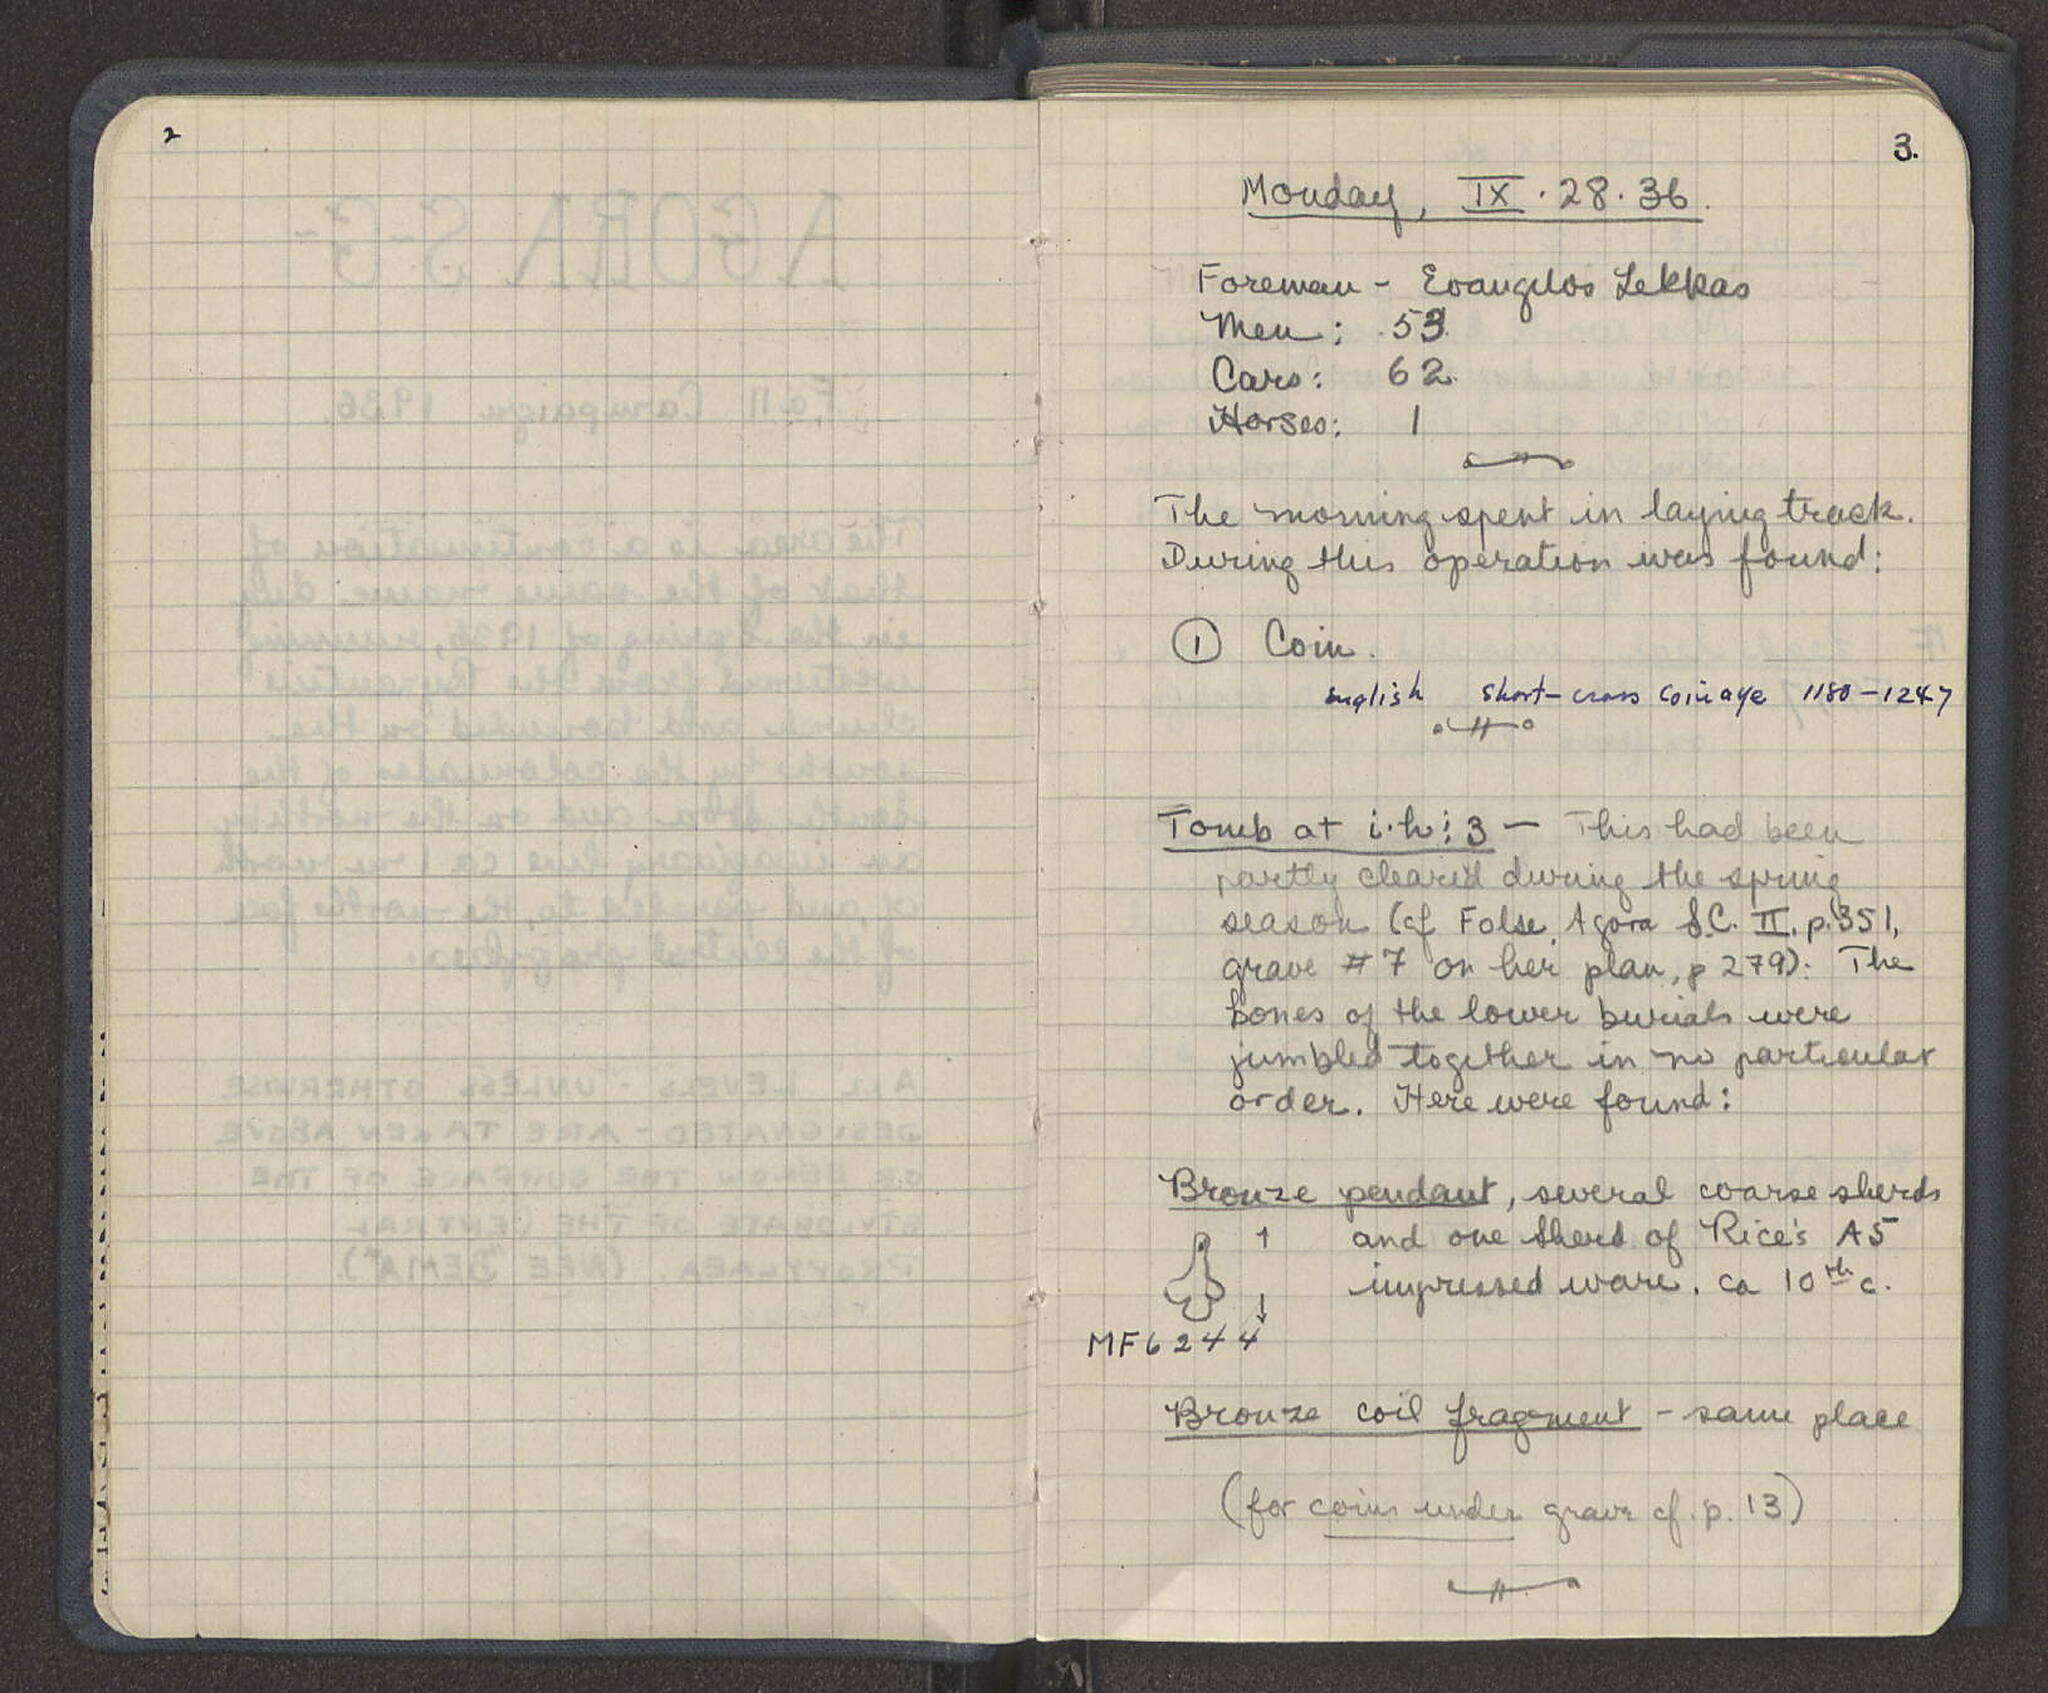 2
3.
Monday, IX · 28 · 36.
Foreman - Evangelos Lekkas
Men: 53
Cars: 62
Horses: 1
The morning spent in laying track.
During this operation was found:
① Coin.
English short-cross coinage 1180-1247
Tomb at i.h: 3 - This had been
partly cleared during the spring
season (cf Folse, Agora S.C. II, p. 351,
grave #7 on her plan, p 279). The
bones of the lower burials were
jumbled together in no particular
order. Here were found:
Bronze pendant, several coarse sherds
1 and one sherd of Rice's A5
impressed ware. ca 10th c.
MF6244
Bronze coil fragment - same place
(for coins under grave cf. p. 13)